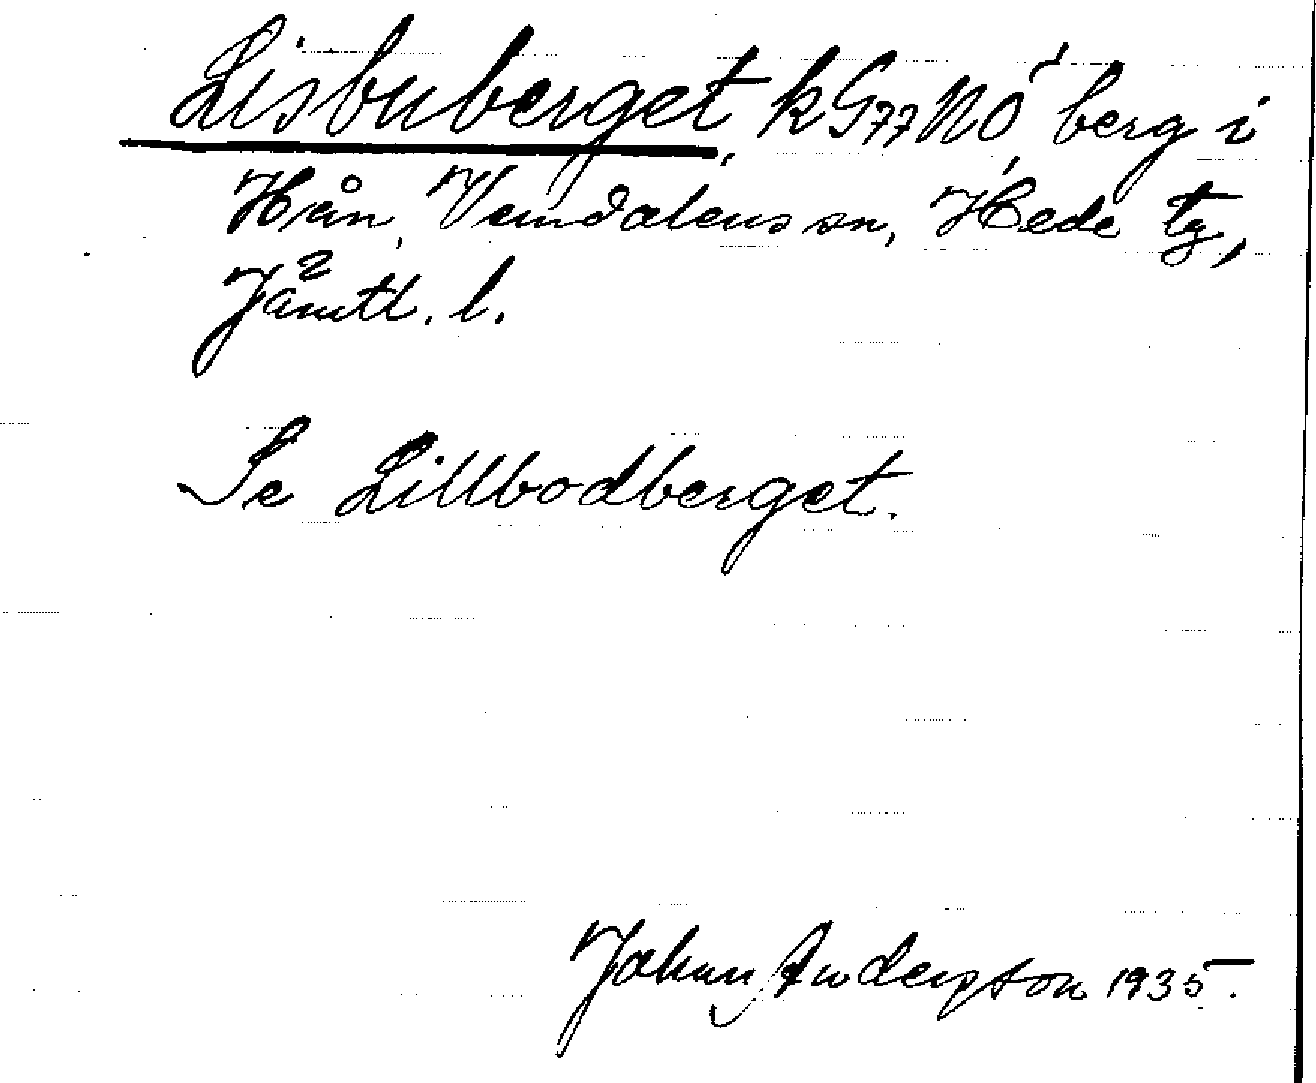 Lisbuberget, k G77 NÖ, berg i
Hån, Vemdalens sn, Hede tg,
Jämtl. l.
Se Lillbodberget.
Johan Anderzton 1935.